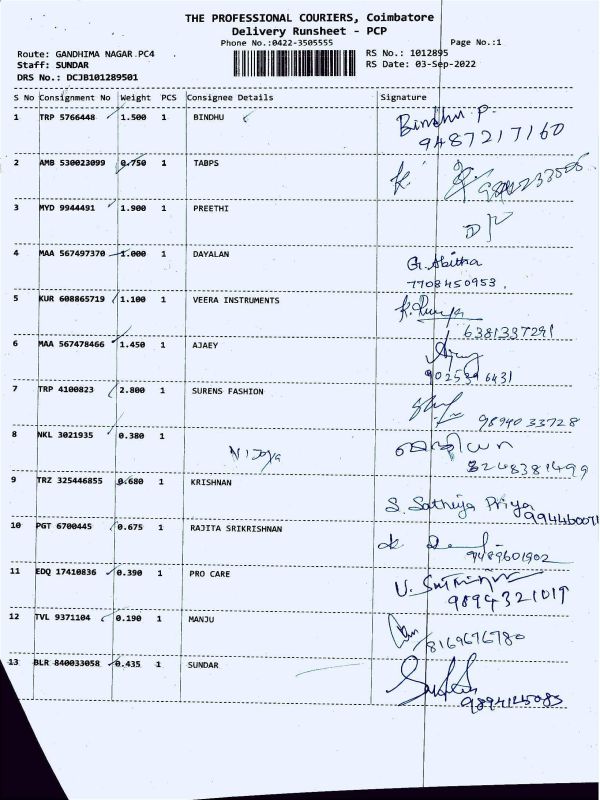 THE PROFESSIONAL COURIERS, Coimbatore
Delivery Runsheet - PCP
Phone No.:0422-3505555 Page No.:1
Route: GANDHIMA NAGAR.PC4 RS No.: 1012895
Staff: SUNDAR RS Date: 03-Sep-2022
DRS No.: DCJB101289501
S No Consignment No Weight PCS Consignee Details Signature
1 TRP 5766448 1.500 1 BINDHU Bindhu P.
9487217160
2 AMB 530023099 0.750 1 TABPS
3 MYD 9944491 1.900 1 PREETHI
4 MAA 567497370 1.000 1 DAYALAN G. Abitha
7708450953.
5 KUR 608865719 1.100 1 VEERA INSTRUMENTS
6381337291
6 MAA 567478466 1.450 1 AJAEY Ajay
9025396431
7 TRP 4100823 2.800 1 SURENS FASHION
98940 33728
8 NKL 3021935 0.380 1
8248381499
9 TRZ 325446855 0.680 1 KRISHNAN S. Sathiya Priya
10 PGT 6700445 0.675 1 RAJITA SRIKRISHNAN
9489601902
11 EDQ 17410836 0.390 1 PRO CARE
9894321019
12 TVL 9371104 0.190 1 MANJU
8169676780
13 BLR 840033058 0.435 1 SUNDAR
9894145085